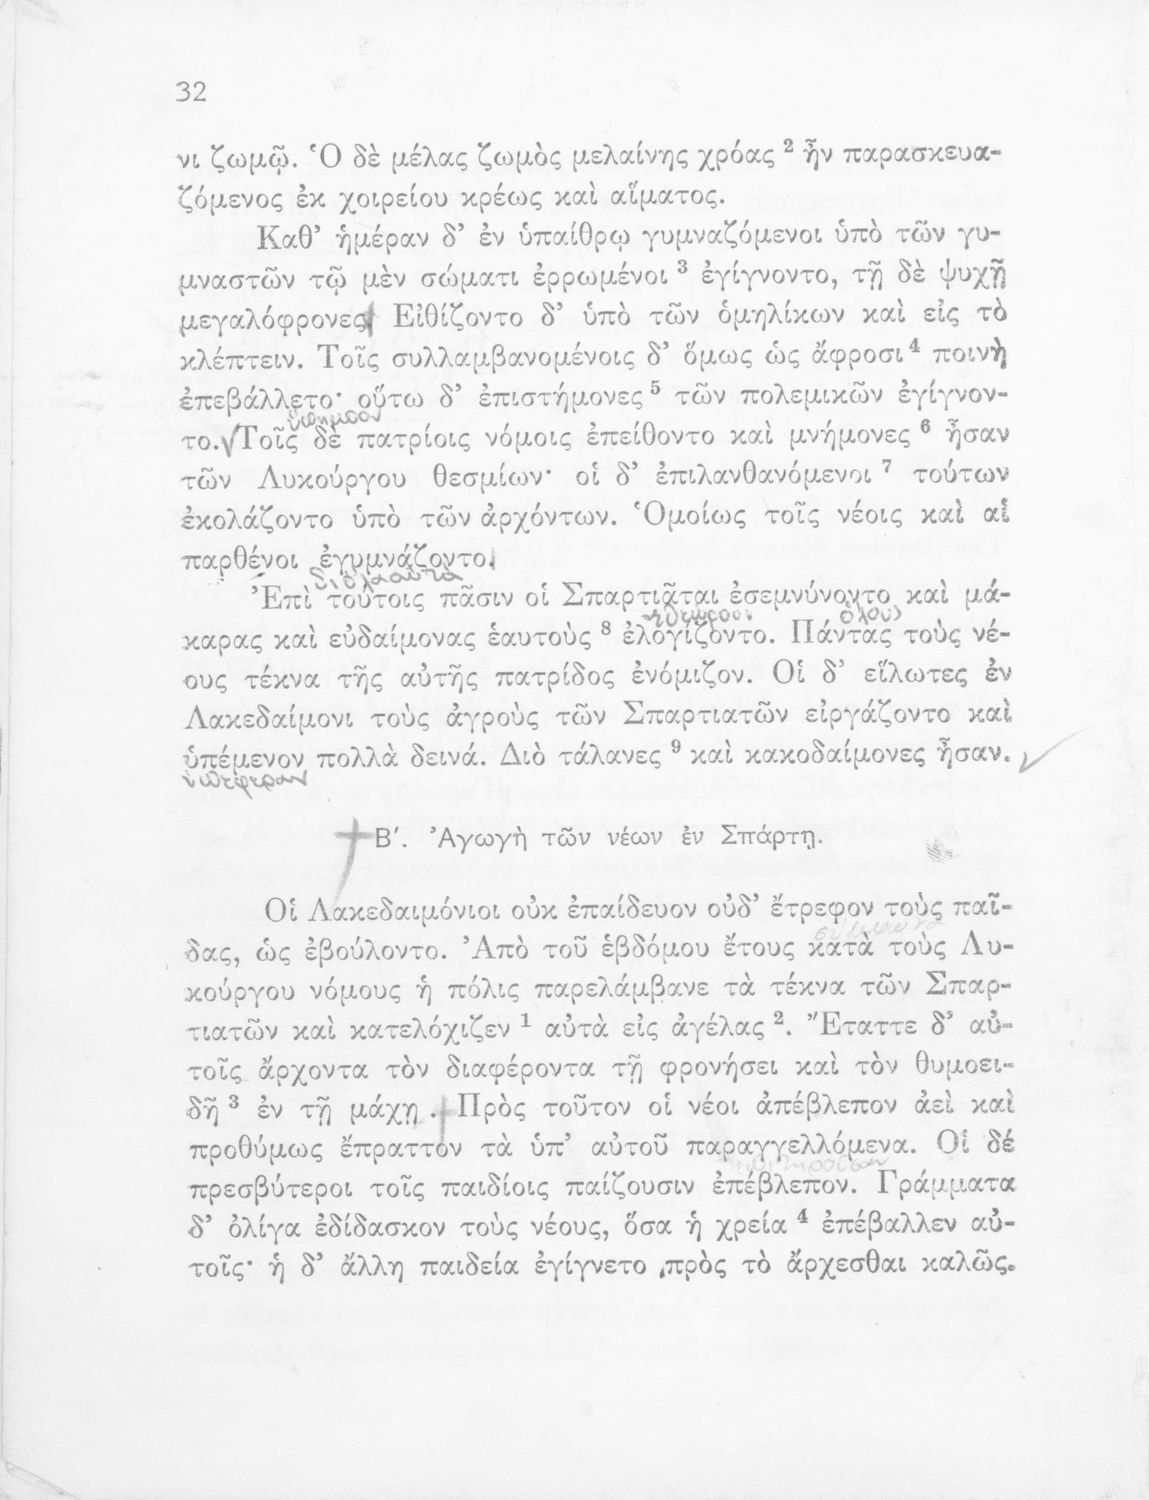 32
νι ζωμῷ. Ὁ δὲ μέλας ζωμὸς μελαίνης χρόας ² ἦν παρασκευα-
ζόμενος ἐκ χοιρείου κρέως καὶ αἵματος.
Καθ’ ἡμέραν δ’ ἐν ὑπαίθρῳ γυμναζόμενοι ὑπὸ τῶν γυ-
μναστῶν τῷ μὲν σώματι ἐρρωμένοι ³ ἐγίγνοντο, τῇ δὲ ψυχῇ
μεγαλόφρονες. Εἰθίζοντο δ’ ὑπὸ τῶν ὁμηλίκων καὶ εἰς τὸ
κλέπτειν. Τοῖς συλλαμβανομένοις δ’ ὅμως ὡς ἄφροσι ⁴ ποινὴ
ἐπεβάλλετο· οὕτω δ’ ἐπιστήμονες ⁵ τῶν πολεμικῶν ἐγίγνον-
το. Τοῖς δὲ πατρίοις νόμοις ἐπείθοντο καὶ μνήμονες ⁶ ἦσαν
τῶν Λυκούργου θεσμίων· οἱ δ’ ἐπιλανθανόμενοι ⁷ τούτων
ἐκολάζοντο ὑπὸ τῶν ἀρχόντων. Ὁμοίως τοῖς νέοις καὶ αἱ
παρθένοι ἐγυμνάζοντο.
Ἐπὶ τούτοις πᾶσιν οἱ Σπαρτιᾶται ἐσεμνύνοντο καὶ μά-
ὅλους
καρας καὶ εὐδαίμονας ἑαυτοὺς ⁸ ἐλογίζοντο. Πάντας τοὺς νέ-
ους τέκνα τῆς αὐτῆς πατρίδος ἐνόμιζον. Οἱ δ’ εἵλωτες ἐν
Λακεδαίμονι τοὺς ἀγροὺς τῶν Σπαρτιατῶν εἰργάζοντο καὶ
ὑπέμενον πολλὰ δεινά. Διὸ τάλανες ⁹ καὶ κακοδαίμονες ἦσαν.
ὑπέφεραν
Β′. Ἀγωγὴ τῶν νέων ἐν Σπάρτῃ.
Οἱ Λακεδαιμόνιοι οὐκ ἐπαίδευον οὐδ’ ἔτρεφον τοὺς παῖ-
δας, ὡς ἐβούλοντο. Ἀπὸ τοῦ ἑβδόμου ἔτους κατὰ τοὺς Λυ-
κούργου νόμους ἡ πόλις παρελάμβανε τὰ τέκνα τῶν Σπαρ-
τιατῶν καὶ κατελόχιζεν ¹ αὐτὰ εἰς ἀγέλας ². Ἔταττε δ’ αὐ-
τοῖς ἄρχοντα τὸν διαφέροντα τῇ φρονήσει καὶ τὸν θυμοει-
δῆ ³ ἐν τῇ μάχῃ. Πρὸς τοῦτον οἱ νέοι ἀπέβλεπον ἀεὶ καὶ
προθύμως ἔπραττον τὰ ὑπ’ αὐτοῦ παραγγελλόμενα. Οἱ δέ
πρεσβύτεροι τοῖς παιδίοις παίζουσιν ἐπέβλεπον. Γράμματα
δ’ ὀλίγα ἐδίδασκον τοὺς νέους, ὅσα ἡ χρεία ⁴ ἐπέβαλλεν αὐ-
τοῖς· ἡ δ’ ἄλλη παιδεία ἐγίγνετο πρὸς τὸ ἄρχεσθαι καλῶς.